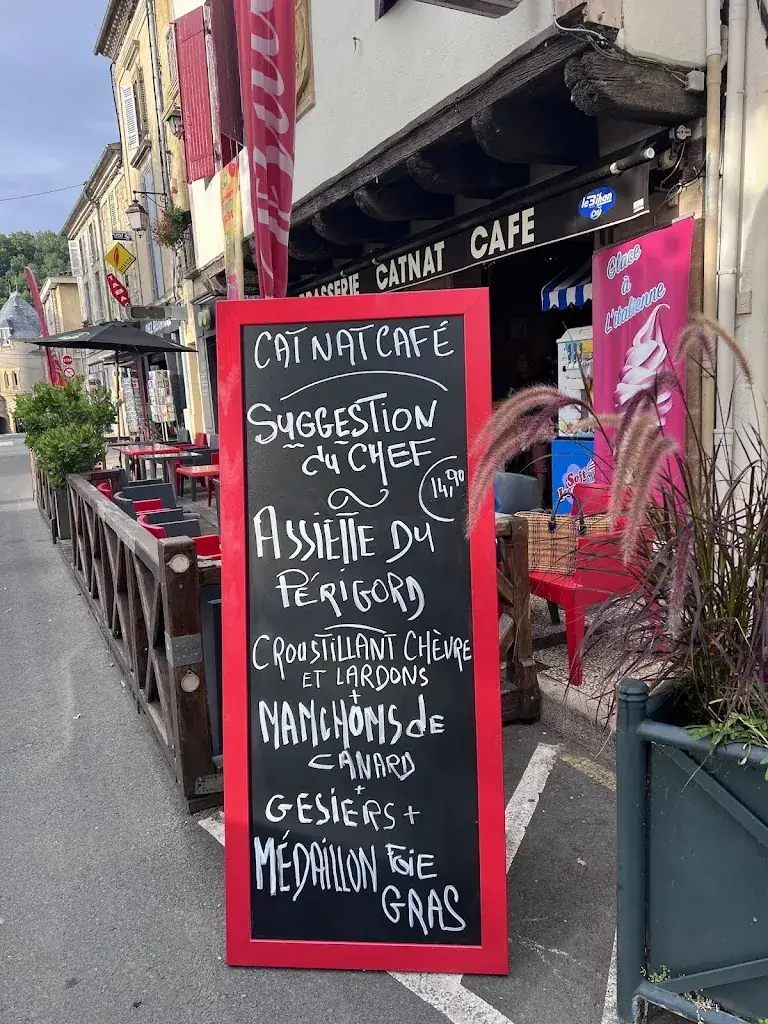 BRASSERIE CATNAT CAFE
le Bihan
Glace
à
L'italienne
Soft
CAT NAT CAFÉ
SUGGESTION
du CHEF
14,90
ASSIETTE DU
PÉRIGORD
CROUSTILLANT CHÈVRE
ET LARDONS
+
MANCHONS de
CANARD
+
GESIERS +
MÉDAILLON FOIE
GRAS